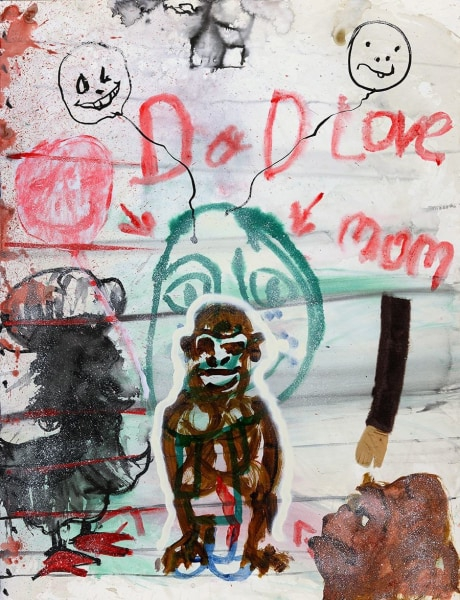 DaD Love
mom